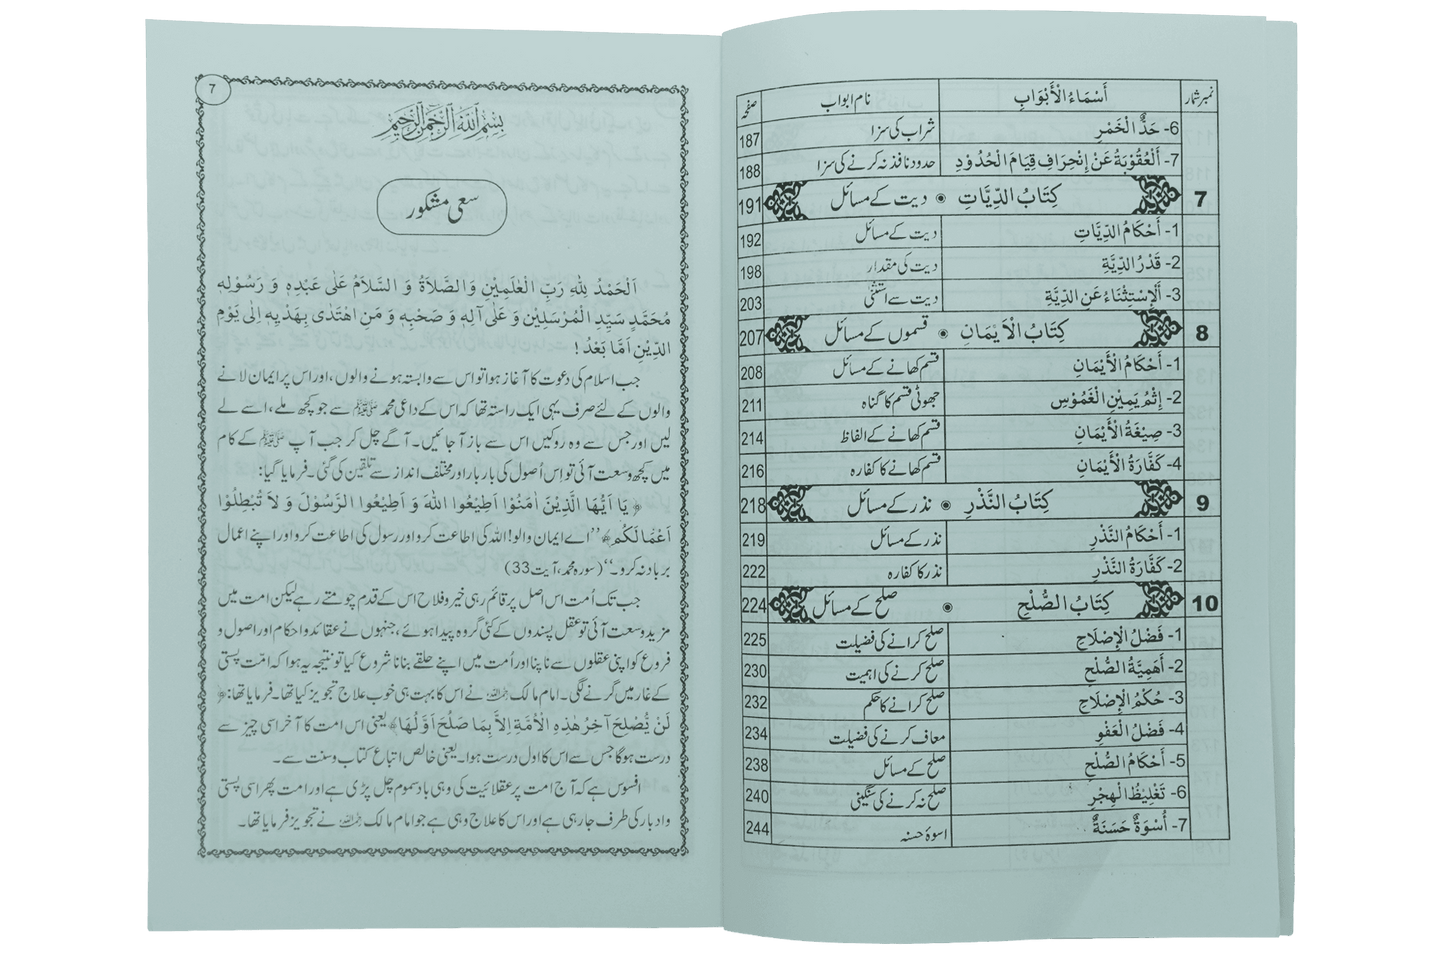 نمبر شمار أَسْمَاءُ الْأَبْوَابِ نام ابواب صفحہ
6- حَدُّ الْخَمْرِ شراب کی سزا 187
7- اَلْعُقُوْبَةُ عَنْ إِنْحِرَافِ قِيَامِ الْحُدُوْدِ حدود نافذ نہ کرنے کی سزا 188
7 كِتَابُ الدِّيَّاتِ دیت کے مسائل 191
1- أَحْكَامُ الدِّيَّاتِ دیت کے مسائل 192
2- قَدْرُ الدِّيَّةِ دیت کی مقدار 198
3- اَلْإِسْتِثْنَاءُ عَنِ الدِّيَّةِ دیت سے استثنیٰ 203
8 كِتَابُ الْاَيْمَانِ قسموں کے مسائل 207
1- أَحْكَامُ الْأَيْمَانِ قسم کھانے کے مسائل 208
2- إِثْمُ يَمِيْنِ الْغَمُوْسِ جھوٹی قسم کا گناہ 211
3- صِيْغَةُ الْأَيْمَانِ قسم کھانے کے الفاظ 214
4- كَفَّارَةُ الْأَيْمَانِ قسم کھانے کا کفارہ 216
9 كِتَابُ النَّذْرِ نذر کے مسائل 218
1- أَحْكَامُ النَّذْرِ نذر کے مسائل 219
2- كَفَّارَةُ النَّذْرِ نذر کا کفارہ 222
10 كِتَابُ الصُّلْحِ صلح کے مسائل 224
1- فَضْلُ الْإِصْلَاحِ صلح کرانے کی فضیلت 225
2- أَهَمِيَّةُ الصُّلْحِ صلح کرنے کی اہمیت 230
3- حُكْمُ الْإِصْلَاحِ صلح کرانے کا حکم 232
4- فَضْلُ الْعَفْوِ معاف کرنے کی فضیلت 234
5- أَحْكَامُ الصُّلْحِ صلح کے مسائل 238
6- تَغْلِيْظُ الْهِجْرِ صلح نہ کرنے کی سنگینی 240
7- أُسْوَةٌ حَسَنَةٌ اسوۂ حسنہ 244
7
بِسْمِ اللهِ الرَّحْمٰنِ الرَّحِيْمِ
سعی مشکور
اَلْحَمْدُ لِلّٰهِ رَبِّ الْعٰلَمِيْنَ وَالصَّلَاةُ وَ السَّلَامُ عَلٰى عَبْدِهٖ وَ رَسُوْلِهٖ
مُحَمَّدٍ سَيِّدِ الْمُرْسَلِيْنَ وَ عَلٰى آلِهٖ وَ صَحْبِهٖ وَ مَنِ اهْتَدٰى بِهَدْيِهٖ اِلٰى يَوْمِ
الدِّيْنِ اَمَّا بَعْدُ !
جب اسلام کی دعوت کا آغاز ہوا تو اس سے وابستہ ہونے والوں، اور اس پر ایمان لانے
والوں کے لئے صرف یہی ایک راستہ تھا کہ اس کے داعی محمد ﷺ سے جو کچھ ملے، اسے لے
لیں اور جس سے وہ روکیں اس سے باز آ جائیں۔ آگے چل کر جب آپ ﷺ کے کام
میں کچھ وسعت آئی تو اِس اُصول کی بار بار اور مختلف انداز سے تلقین کی گئی۔ فرمایا گیا:
﴿ يَا اَيُّهَا الَّذِيْنَ اٰمَنُوْا اَطِيْعُوا اللهَ وَ اَطِيْعُوا الرَّسُوْلَ وَ لَا تُبْطِلُوْا
اَعْمَالَكُمْ﴾ ’’اے ایمان والو! اللہ کی اطاعت کرو اور رسول کی اطاعت کرو اور اپنے اعمال
برباد نہ کرو۔‘‘ (سورہ محمد، آیت 33)
جب تک اُمت اس اصل پر قائم رہی خیر و فلاح اس کے قدم چومتے رہے لیکن امت میں
مزید وسعت آئی تو عقل پسندوں کے کئی گروہ پیدا ہوئے، جنہوں نے عقائد و احکام اور اصول و
فروع کو اپنی عقلوں سے ناپنا اور اُمت میں اپنے حلقے بنانا شروع کیا تو نتیجہ یہ ہوا کہ امت پستی
کے غار میں گرنے لگی۔ امام مالک رحمہ اللہ نے اس کا بہت ہی خوب علاج تجویز کیا تھا۔ فرمایا تھا: ﴿
لَنْ يُّصْلِحَ آخِرُ هٰذِهِ الْاُمَّةِ اِلَّا بِمَا صَلُحَ اَوَّلُهَا﴾ یعنی اس امت کا آخر اسی چیز سے
درست ہوگا جس سے اس کا اول درست ہوا۔ یعنی خالص اتباع کتاب و سنت سے۔
افسوس ہے کہ آج امت پر عقلائیت کی وہی باد سموم چل پڑی ہے اور امت پھر اسی پستی
و ادبار کی طرف جا رہی ہے اور اس کا علاج وہی ہے جو امام مالک رحمہ اللہ نے تجویز فرمایا تھا۔